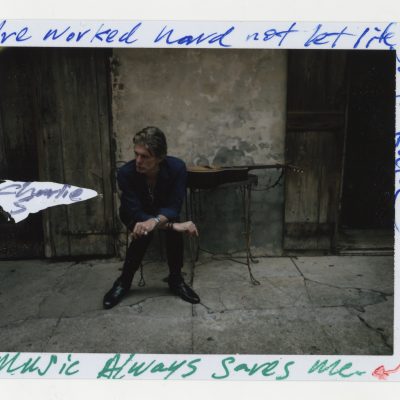 I've worked hard not let life
Charlie
S
Music Always Saves me.